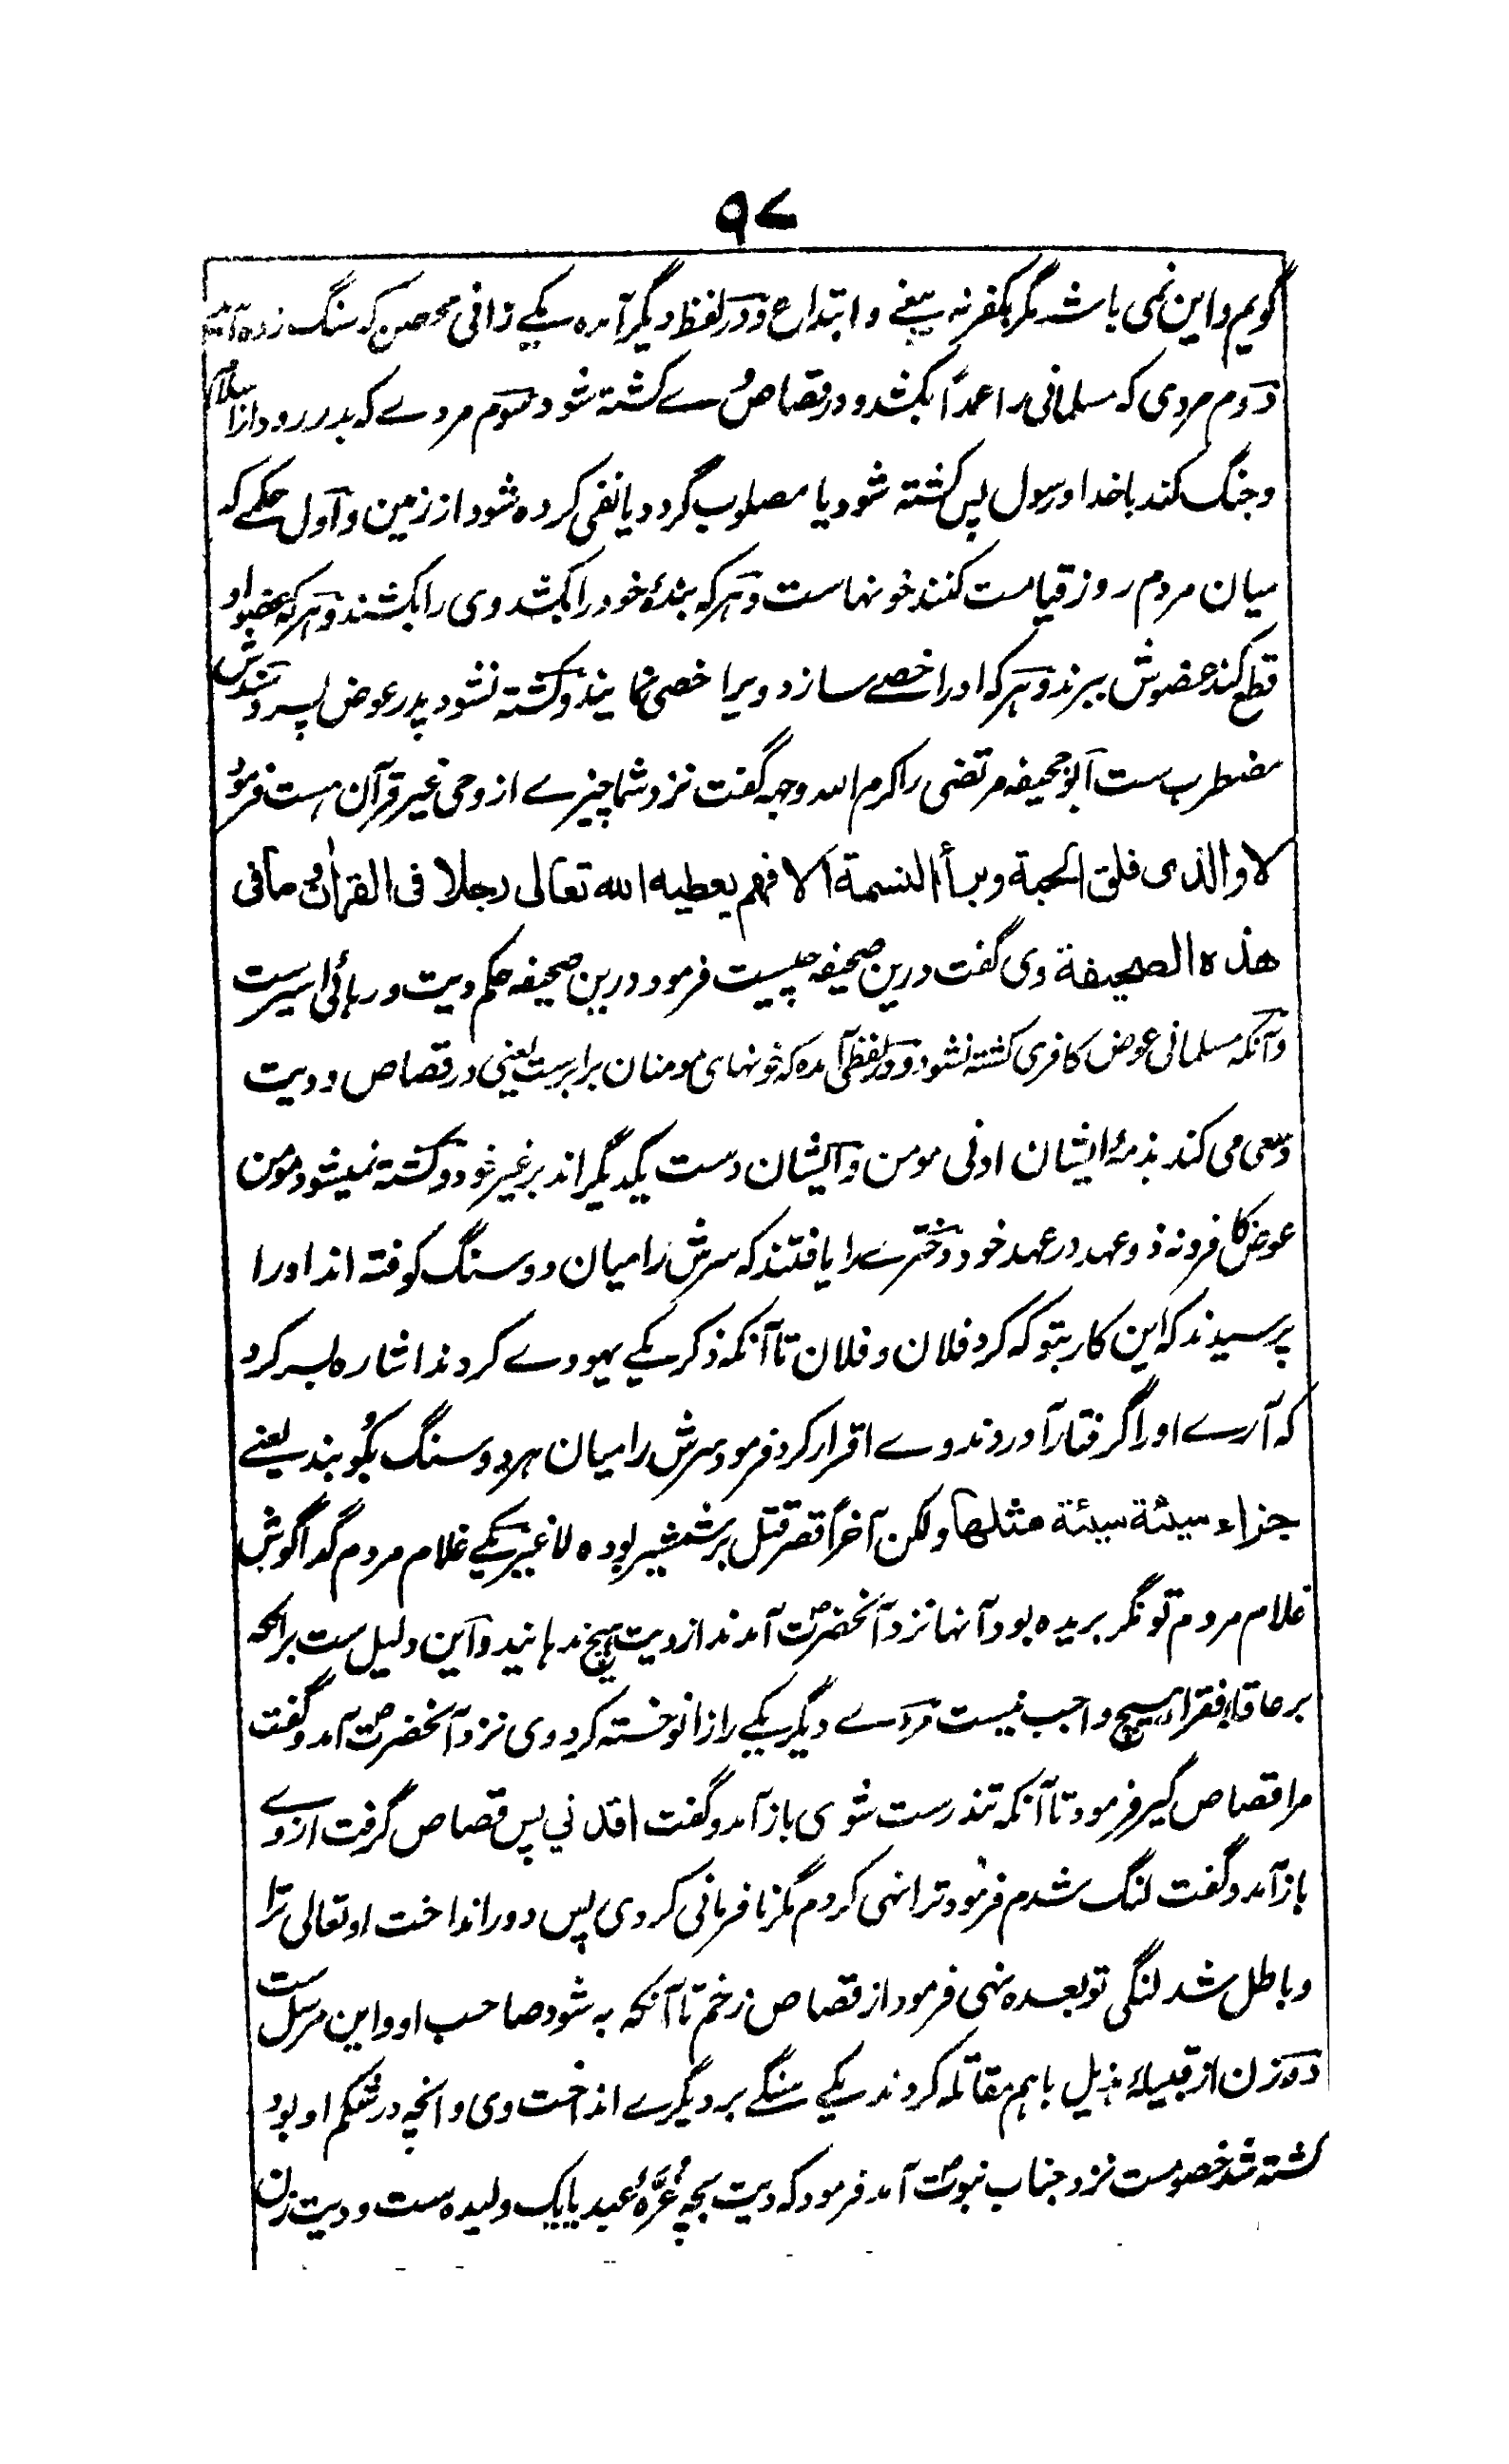 ۹۷
گویم و این نمی باشد مگر بکفر نه ببغی و ابتداع و در لفظ دیگر آمده یکے زانی محصن که سنگ زده آید
دوم مردی که مسلمانی را عمداً بکشد و در قصاص وے کشته شود سوم مردے که بدر رود از اسلام
و جنگ کند با خدا و رسول پس کشته شود یا مصلوب گردد یا نفی کرده شود از زمین و اول حکمے که
میان مردم روز قیامت کنند خونهاست و هرکه بندهٔ خود را بکشد وی را بکشند و هرکه عضو او
قطع کند عضوش ببرند و هرکه او را خصے سازد ویرا خصی نمایند و کشته نشود پدر عوض پسر و سندش
مضطرب ست ابو جحیفه مرتضی را کرم الله وجهه گفت نزد شما چیزے از وحی غیر قرآن هست فرمود
لا والذی فلق الحبة وبرأ النسمة الا فهم یعطیه الله تعالی رجلا فی القرآن و مافی
هذه الصحیفة وی گفت درین صحیفه چیست فرمود درین صحیفه حکم دیت و رهائی اسیرست
و آنکه مسلمانی عوض کافری کشته نشود و در لفظی آمده که خونهای مومنان برابرست یعنی در قصاص و دیت
و سعی می کند بذمۂ ایشان ادنی مومن و ایشان دست یکدیگر اند بر غیر خود و کشته نمیشود مومن
عوض کافر و نه ذو عهد در عهد خود و دخترے را یافتند که سرش را میان دو سنگ کوفته اند او را
پرسیدند که این کار بتو که کرد فلان و فلان تا آنکه ذکر یکے یهودے کردند اشاره بسر کرد
که آرے او را گرفتار آوردند وے اقرار کرد فرمود سرش را میان هر دو سنگ بکوبند یعنے
جزاء سیئة سیئة مثلها ولکن آخراً قصر قتل بر شمشیر بوده لا غیر یکے غلام مردم گدا گوش
غلام مردم تونگر بریده بود آنها نزد آنحضرتؐ آمدند از دیت هیچ ندهانید و این دلیل ست بر آنکه
بر عاقلهٔ فقراء هیچ واجب نیست مردے دیگر یکے را زانو خسته کرد وی نزد آنحضرتؐ آمد و گفت
مرا قصاص گیر فرمود تا آنکه تندرست شوی باز آمد و گفت اقدنی پس قصاص گرفت از وے
باز آمد و گفت لنگ شدم فرمود ترا نهی کردم مگر نافرمانی کردی پس دور انداخت او تعالی ترا
و باطل شد لنگی تو بعده نهی فرمود از قصاص زخم تا آنکه به شود صاحب او و این مرسل ست
دو زن از قبیلهٔ هذیل باهم مقاتله کردند یکے سنگے بر دیگرے انداخت وی و آنچه در شکم او بود
کشته شد خصومت نزد جناب نبوتؐ آمد فرمود که دیت بچه غُرّهٔ عبد یا یک ولیده ست و دیت زن